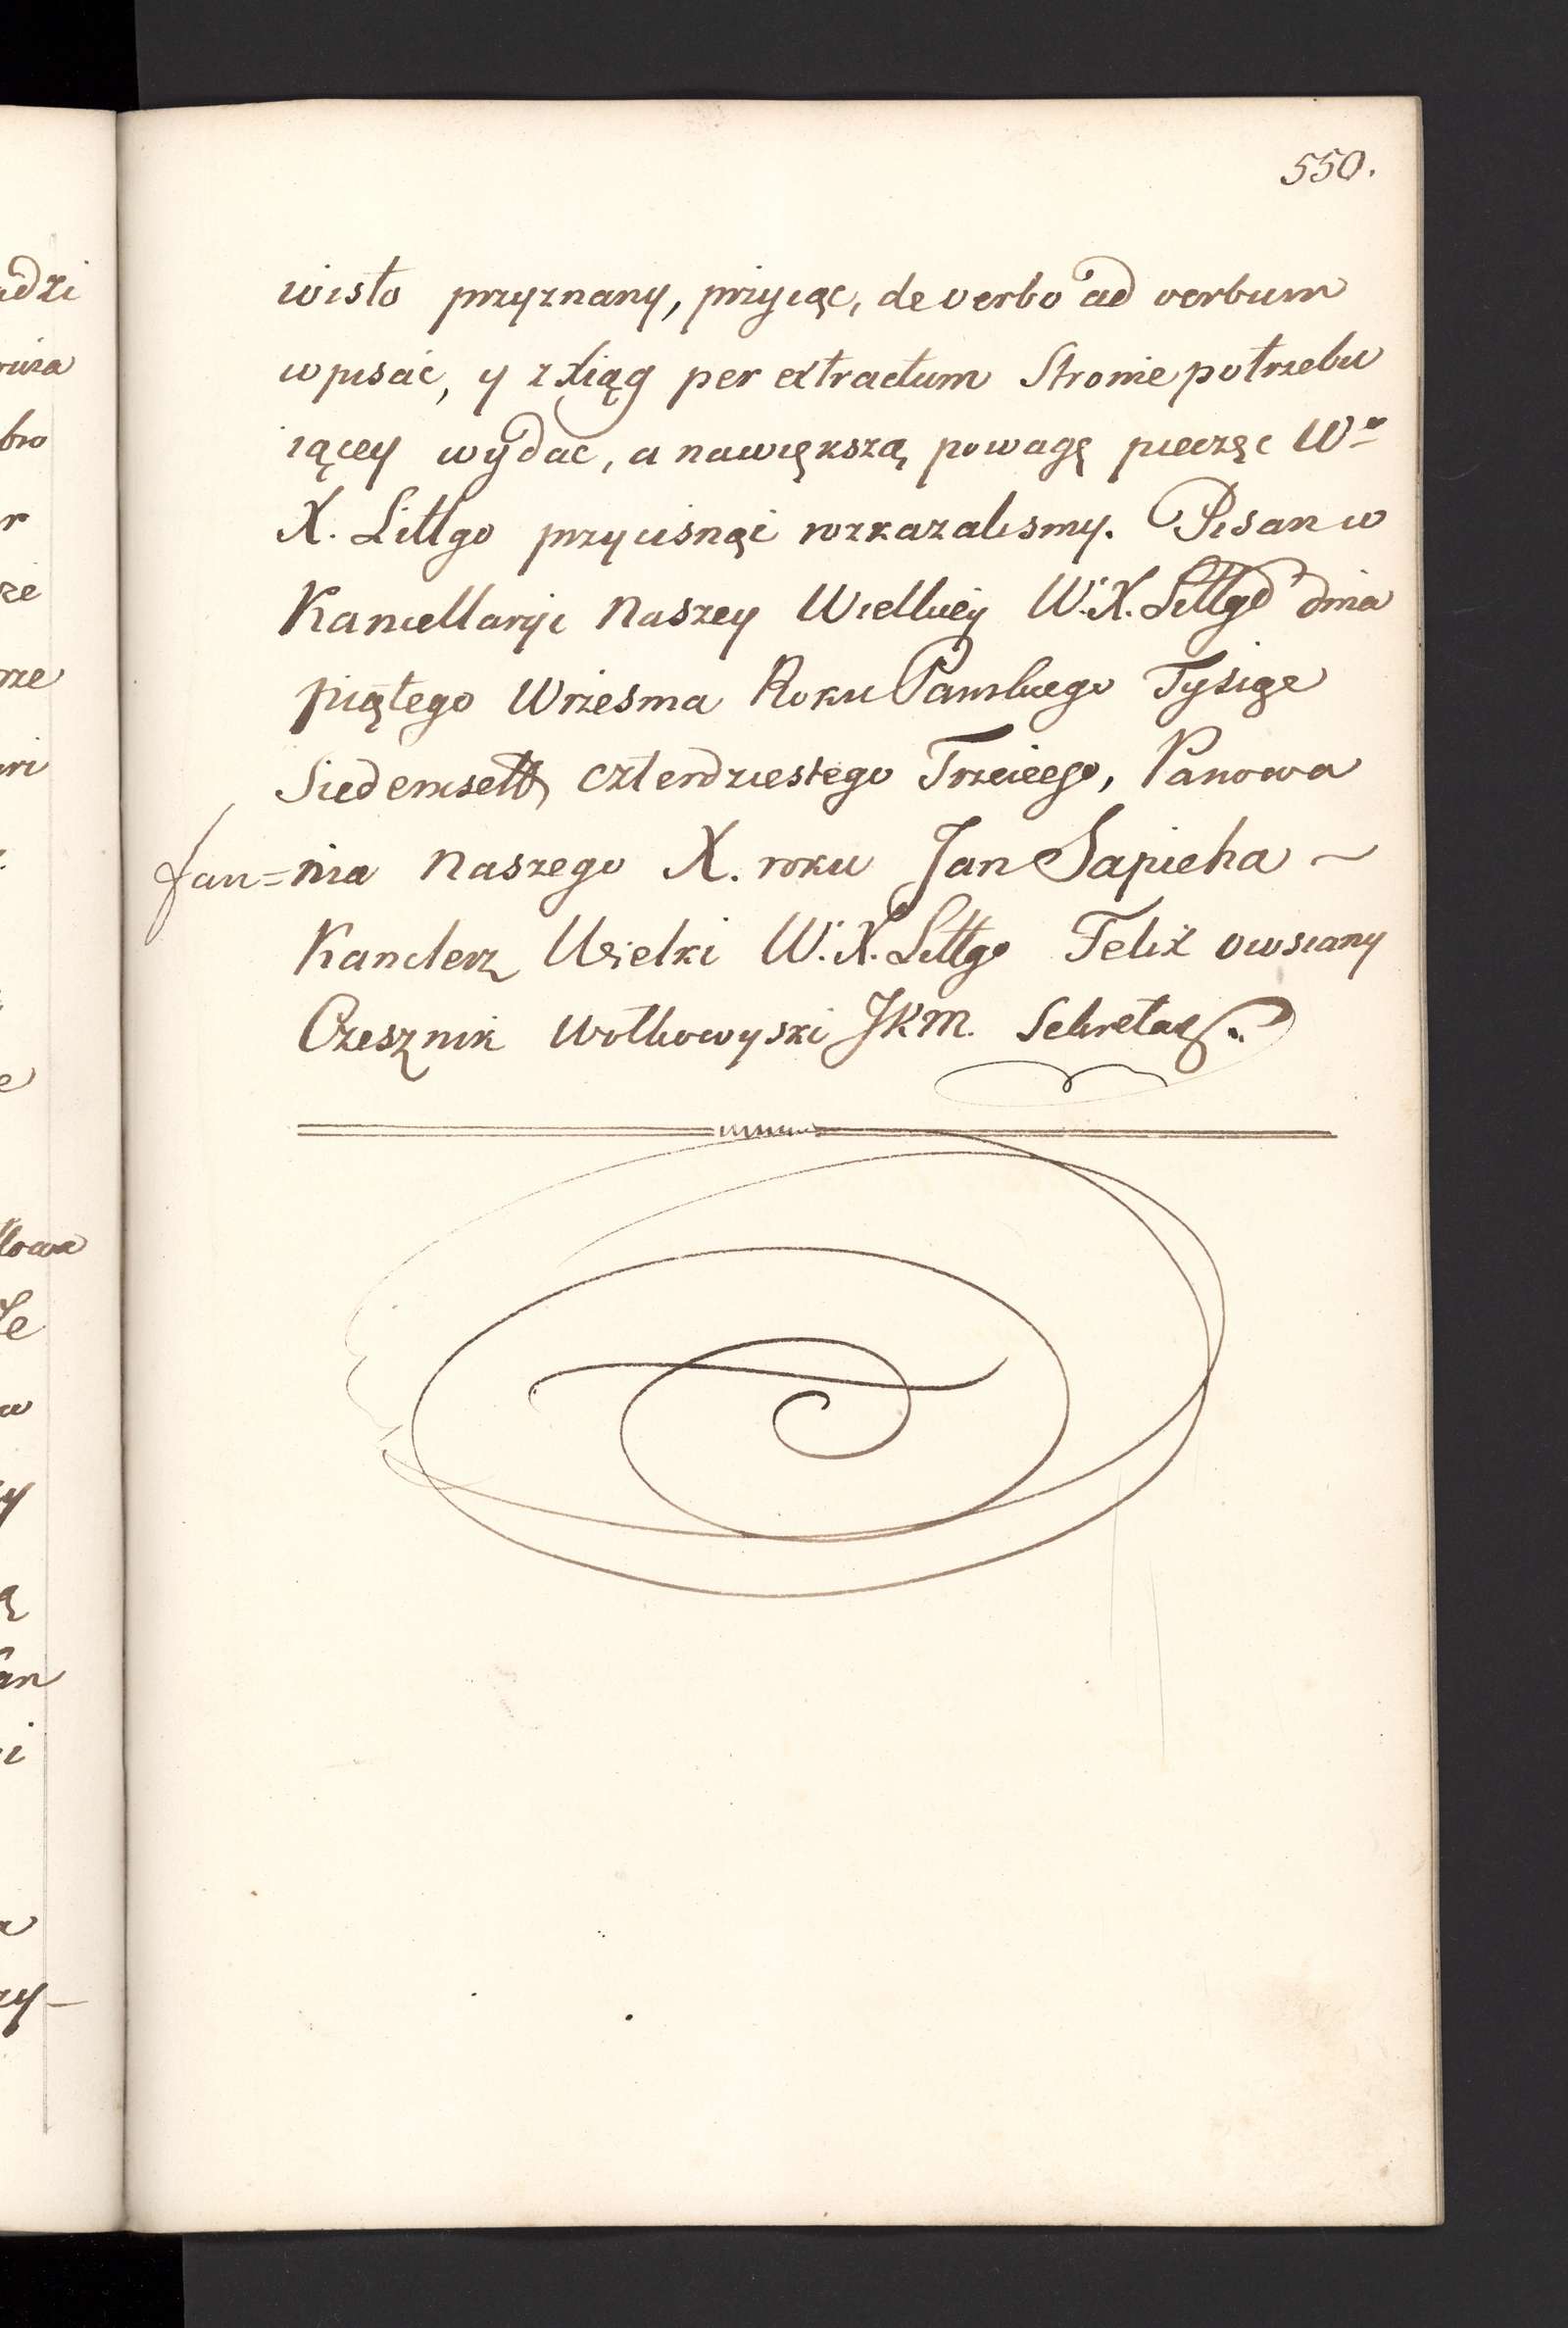 550.
wisto przyznany, przyiąc, de verbo ad verbum
wpisać, y z Xiąg per extractum Stronie potrzebu
iącey wydac, a nawiększą powagę pieczęc Wo
X. Littgo przycisnąć rozkazalismy. Pisan w
Kancellaryi Naszey Wielkiey W. X. Littgo dnia
piątego Wrzesnia Roku Panskiego Tysiąc
Siedemsett czterdziestego Trzeciego, Panowa
nia Naszego X. roku Jan Sapieha ~
Kanclerz Wielki W. X. Littgo Felix Owsiany
Czesznik Wołkowyski JKM. Sekretarz.